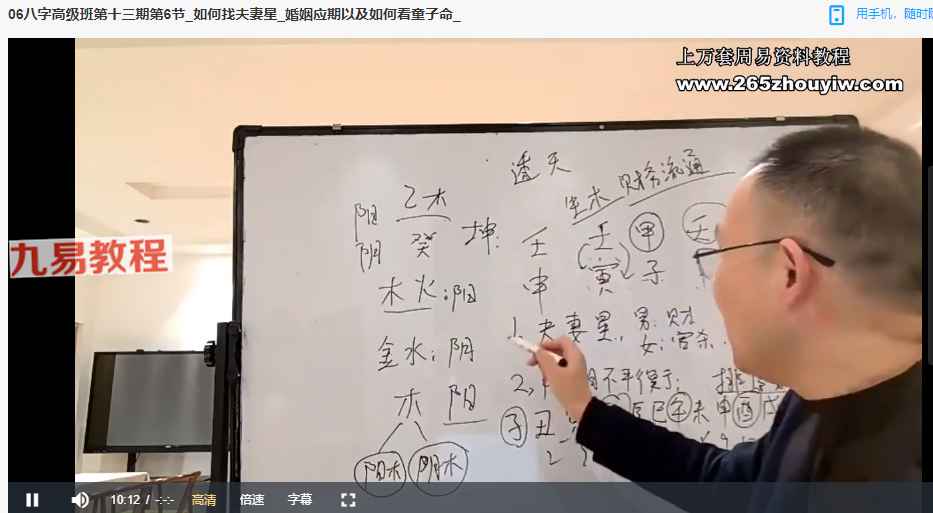 06八字高级班第十三期第6节_如何找夫妻星_婚姻应期以及如何看童子命_
用手机，随时随
上万套周易资料教程
www.265zhouyiw.com
九易教程
透天
乙木
生木 财务流通
阴
阴 癸 坤:
壬 壬 甲 壬
申 寅 子
木火:阳
金水:阴
1. 夫妻星, 男:财
女:官杀.
木 阳
2,
子丑
辰巳午未申酉戌
阳木 阴木
10:12 / -:-:-
高清
倍速
字幕